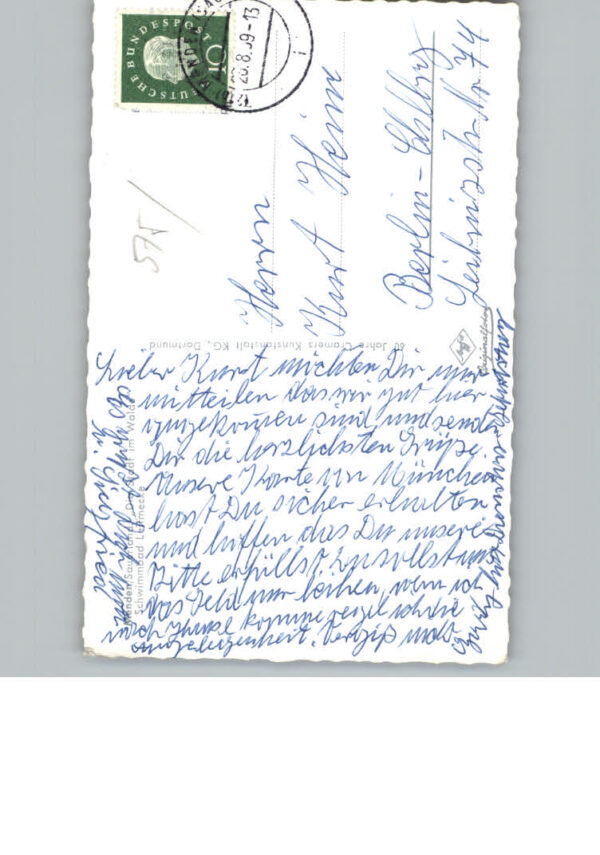 DEUTSCHE BUNDESPOST
10
MENDEN
.8.59-13
575/
Herrn
Kurt Heim
Berlin-Chlbrg
Leibnizstr. Nr 74
60 Jahre Cramers Kunstanstalt KG, Dortmund
Agfa
Originalfoto
Menden Sauerland Die Stadt im Walde
Schwimmbad
Lieber Kurt möchten Dir nur
mitteilen das wir gut hier
angekommen sind und senden
Dir die herzlichsten Grüße.
Unsere Karte von München
hast Du sicher erhalten
und hoffen das Du unsere
Bitte erfüllst. Du sollst uns
das Geld nur leihen, wenn ich
nach Hause komme regel ich die
Angelegenheit. Vergiß nicht
Es grüßt Dich